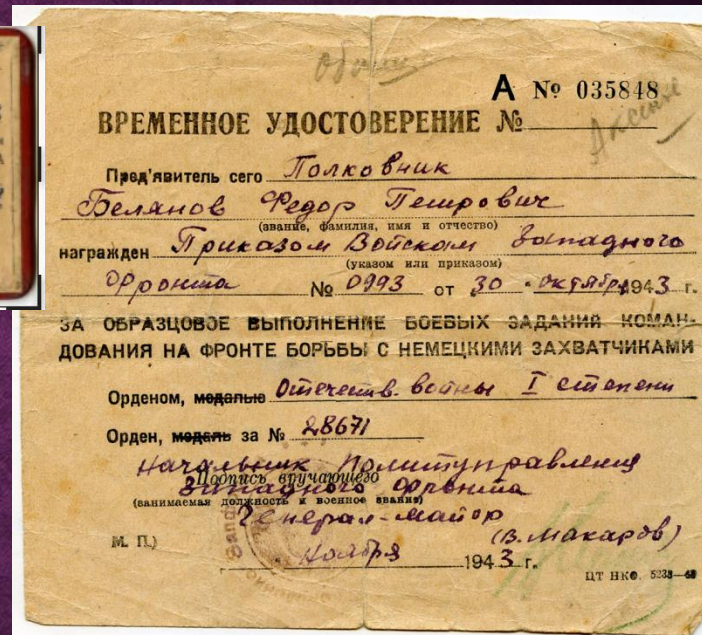 А № 035848
ВРЕМЕННОЕ УДОСТОВЕРЕНИЕ №
Пред'явитель сего Полковник
Белянов Федор Петрович
(звание, фамилия, имя и отчество)
награжден Приказом Войскам Западного
(указом или приказом)
Фронта № 0993 от 30 октября 1943 г.
ЗА ОБРАЗЦОВОЕ ВЫПОЛНЕНИЕ БОЕВЫХ ЗАДАНИЙ КОМАН-
ДОВАНИЯ НА ФРОНТЕ БОРЬБЫ С НЕМЕЦКИМИ ЗАХВАТЧИКАМИ
Орденом, медалью Отечеств. войны I степени
Орден, медаль за № 28671
Начальник Политуправления
Подпись вручающего
Западного фронта
(занимаемая должность и военное звание)
Генерал-майор
М. П.) (В. Макаров)
Ноября 1943 г.
ЦТ НКО.